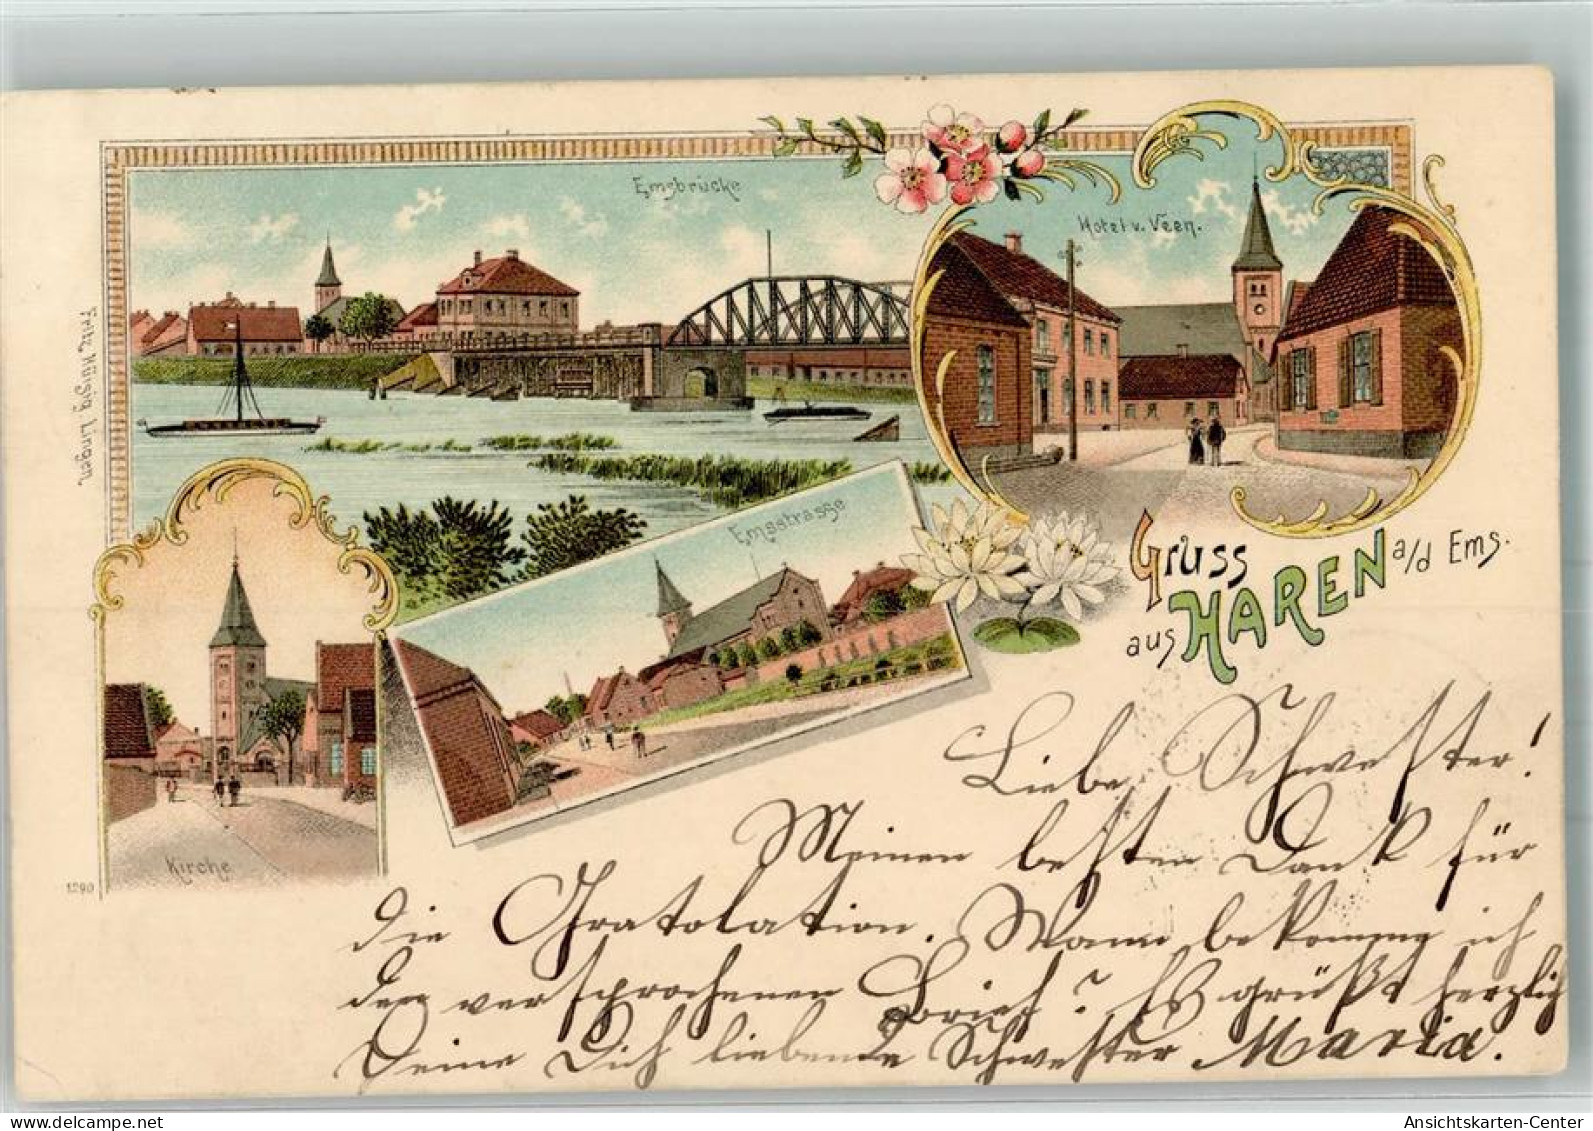 Emsbrücke
Hotel v. Veen.
Fritz Hülsig Lingen.
Emsstrasse
Gruss
aus HAREN a/d Ems.
Kirche
1290
Liebe Schwester!
Meinen besten Dank für
die Gratolation. Wann bekomme ich
den versprochenen Brief? Es grüßt herzlich
Deine Dich liebende Schwester Maria.
Ansichtskarten-Center